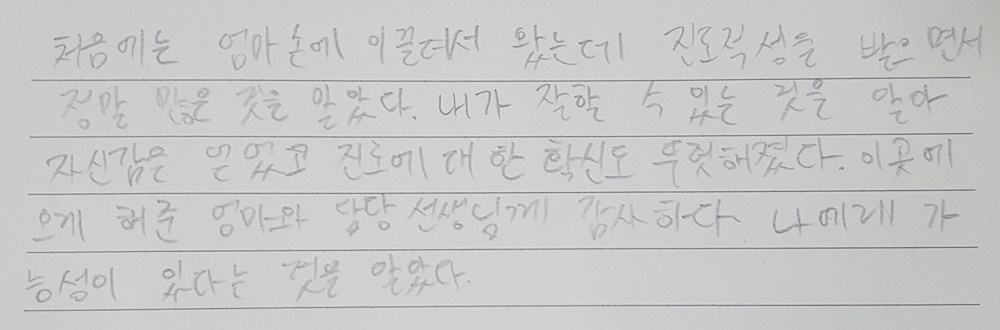 처음에는 엄마 손에 이끌려서 왔는데 진로적성을 받으면서
정말 많은 것을 알았다. 내가 잘할 수 있는 것을 알아
자신감을 얻었고 진로에 대한 확신도 뚜렷해졌다. 이곳에
오게 해준 엄마와 담당 선생님께 감사하다. 나에게 가
능성이 있다는 것을 알았다.